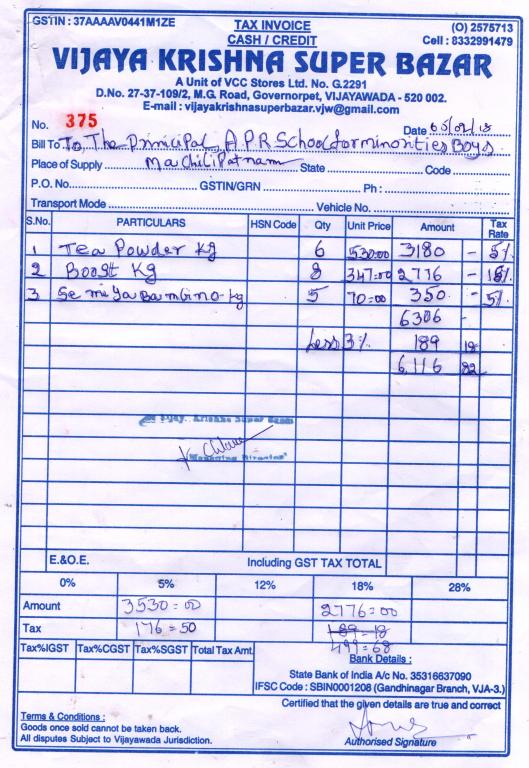 GSTIN : 37AAAAV0441M1ZE TAX INVOICE (O) 2575713
CASH / CREDIT Cell : 8332991479
VIJAYA KRISHNA SUPER BAZAR
A Unit of VCC Stores Ltd. No. G.2291
D.No. 27-37-109/2, M.G. Road, Governorpet, VIJAYAWADA - 520 002.
E-mail : vijayakrishnasuperbazar.vjw@gmail.com
No. 375 Date
Bill To To, The Principal, A.P.R School for minorities Boys
Place of Supply Machilipatnam State Code
P.O. No. GSTIN/GRN Ph :
Transport Mode Vehicle No.
S.No. PARTICULARS HSN Code Qty Unit Price Amount Tax Rate
1 Tea Powder Kg 6 530=00 3180 - 5%
2 Boost Kg 8 347=00 2776 - 18%
3 Semiya Bambino-kg 5 70=00 350 - 5%
6306 -
Less 3% 189 18
6,116 82
Vijaya Krishna Super Bazar
Managing Director
E.&O.E. Including GST TAX TOTAL
0% 5% 12% 18% 28%
Amount 3530=00 2776=00
Tax 176=50 189=18
499=68
Tax%IGST Tax%CGST Tax%SGST Total Tax Amt.
Bank Details :
State Bank of India A/c No. 35316637090
IFSC Code : SBIN0001208 (Gandhinagar Branch, VJA-3.)
Certified that the given details are true and correct
Terms & Conditions :
Goods once sold cannot be taken back.
All disputes Subject to Vijayawada Jurisdiction.
Authorised Signature